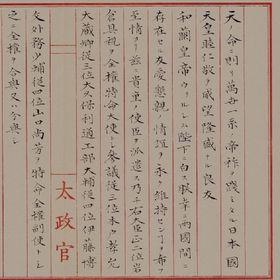 天ノ命ニ則リ萬世一系ノ帝祚ヲ踐ミタル日本國
天皇睦仁敬テ威望隆盛ナル良友
和蘭皇帝ウィルレム陛下ニ白ス朕幸ニ兩國間ニ
存在セル友愛懇親ノ情誼ヲ永ク維持センヿヲ希フ
至情ヨリ茲ニ貴重ノ使臣ヲ派遣ス乃チ右大臣正二位岩
倉具視ヲ全權特命大使トシ參議從三位木戸孝允
大藏卿從三位大久保利通工部大輔從四位伊藤博
太政官
文外務少輔從四位山口尚芳ヲ特命全權副使トシ
之ニ全權ヲ合與又ハ分與シ